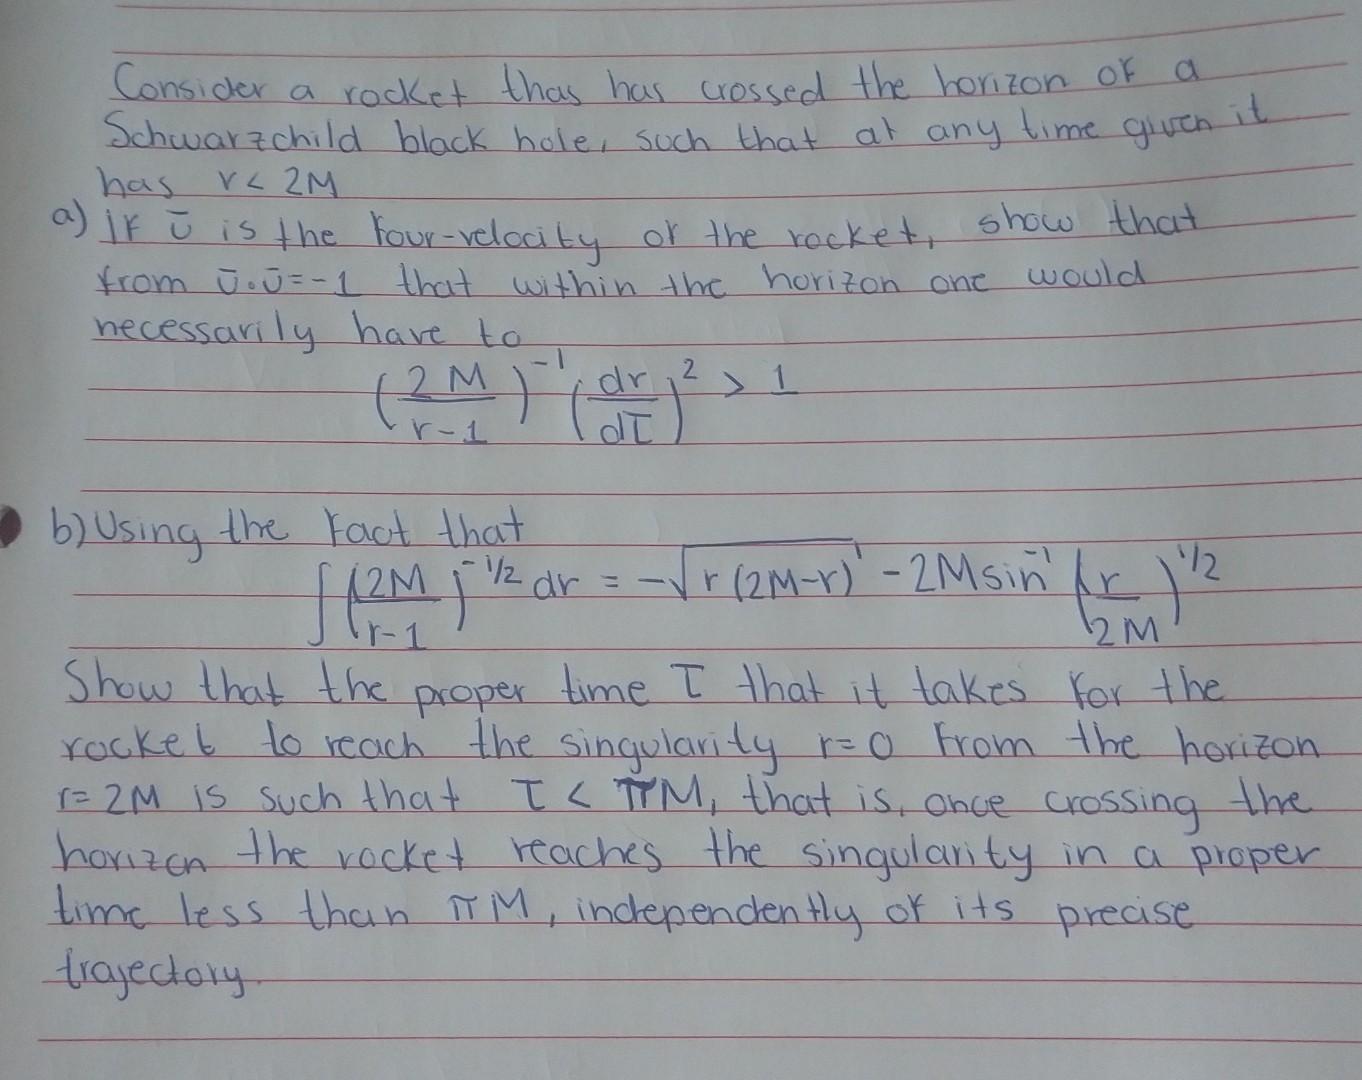 Consider a rocket thas has crossed the horizon of a
Schwarzchild black hole, such that at any time given it
has r < 2M
a) If ū is the four-velocity of the rocket, show that
from ū·ū=-1 that within the horizon one would
necessarily have to
(2M/r-1)^-1 (dr/dτ)^2 > 1
b) Using the fact that
∫(2M/r-1)^-1/2 dr = -√r(2M-r) - 2M sin^-1 (r/2M)^1/2
Show that the proper time τ that it takes for the
rocket to reach the singularity r=0 from the horizon
r=2M is such that τ < πM, that is, once crossing the
horizon the rocket reaches the singularity in a proper
time less than πM, independently of its precise
trajectory.